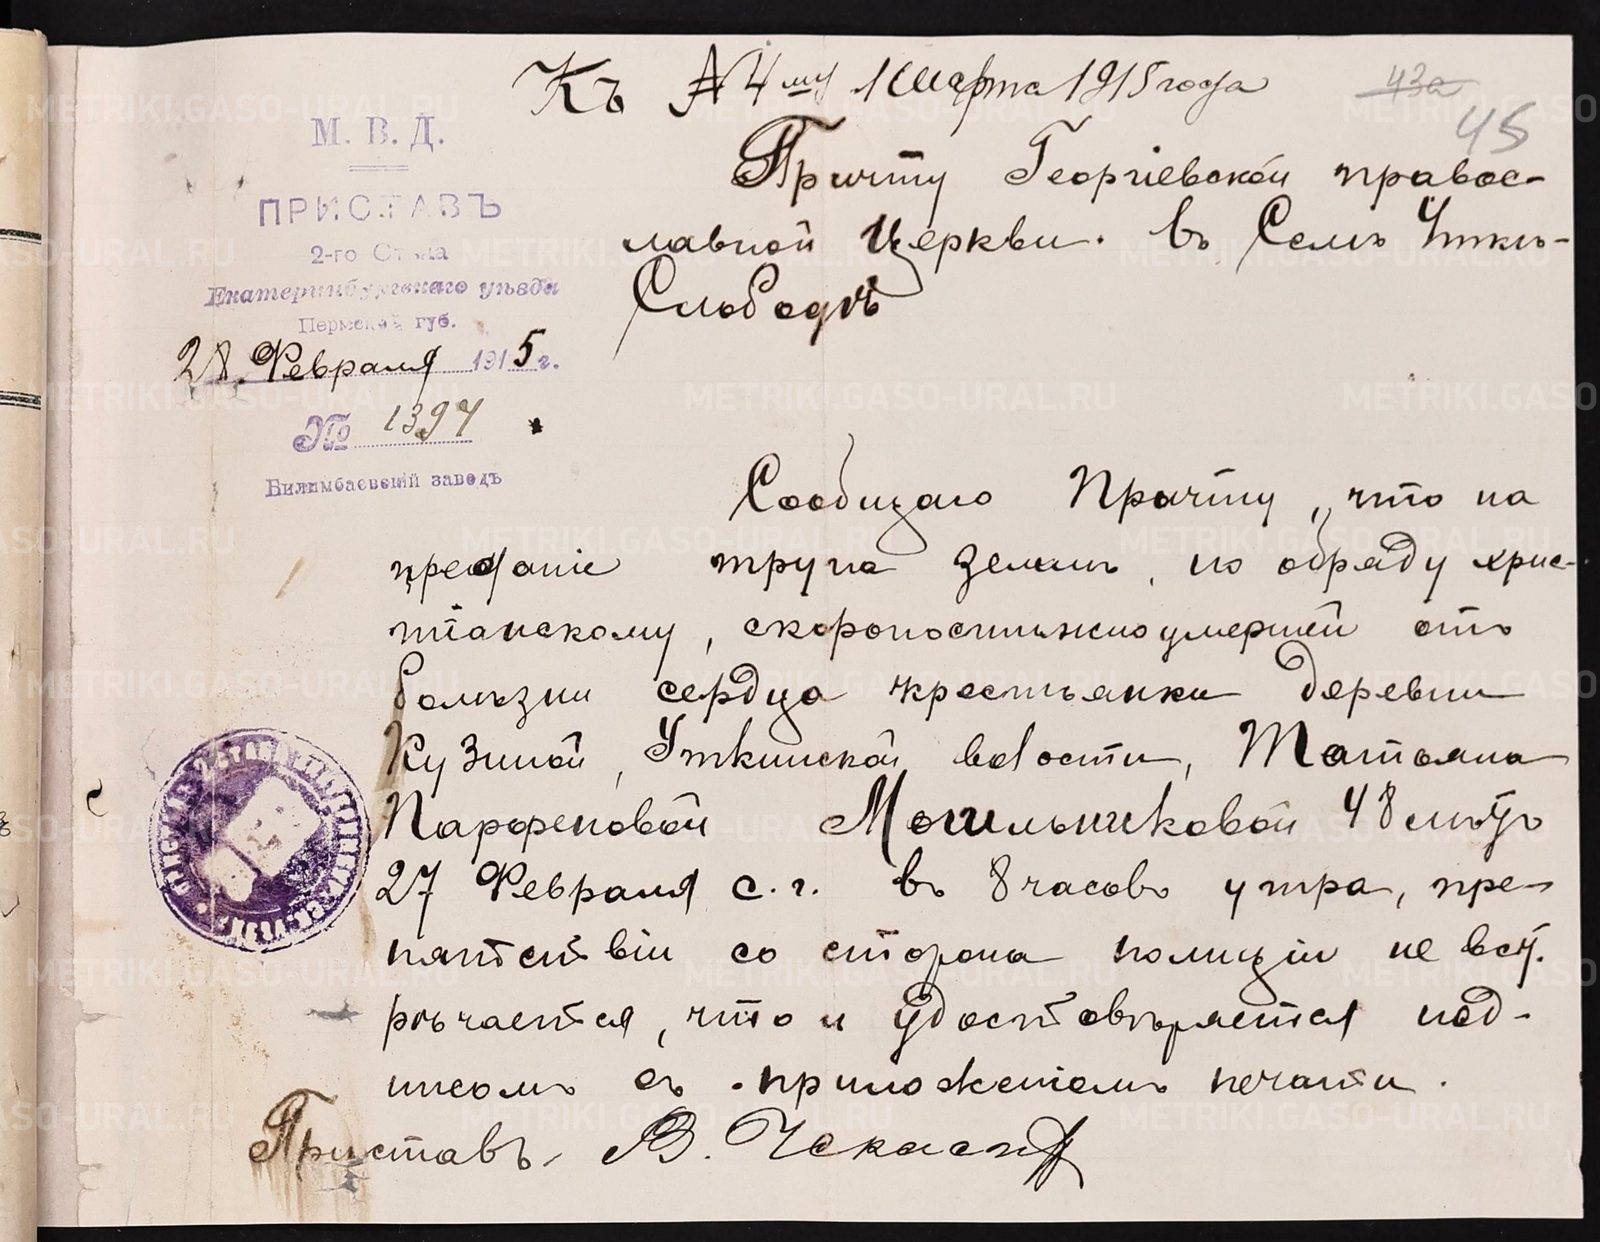 Къ № 4му 1 Марта 1915 года
43а
45
М. В. Д.
ПРИСТАВЪ
2-го Стана
Екатеринбургскаго уѣзда
Пермской губ.
28 Февраля 1915 г.
№ 1397
Билимбаевскій заводъ
Причту Георгіевской правос-
лавной Церкви въ Селѣ Уткѣ-
Слободѣ
Сообщаю Причту, что на
преданіе трупа землѣ, по обряду хрис-
тіанскому, скоропостижно умершей отъ
болѣзни сердца крестьянки деревни
Кузиной, Уткинской волости, Татьяна
Парфеновой Мошельниковой 48 лѣтъ
27 Февраля с. г. въ 8 часовъ утра, пре-
пятствіи со сторона полиціи не вст.
рѣчается, что и удостовѣряется под-
писомъ съ приложеніемъ печати.
Приставъ В.
METRIKI.GASO-URAL.RU